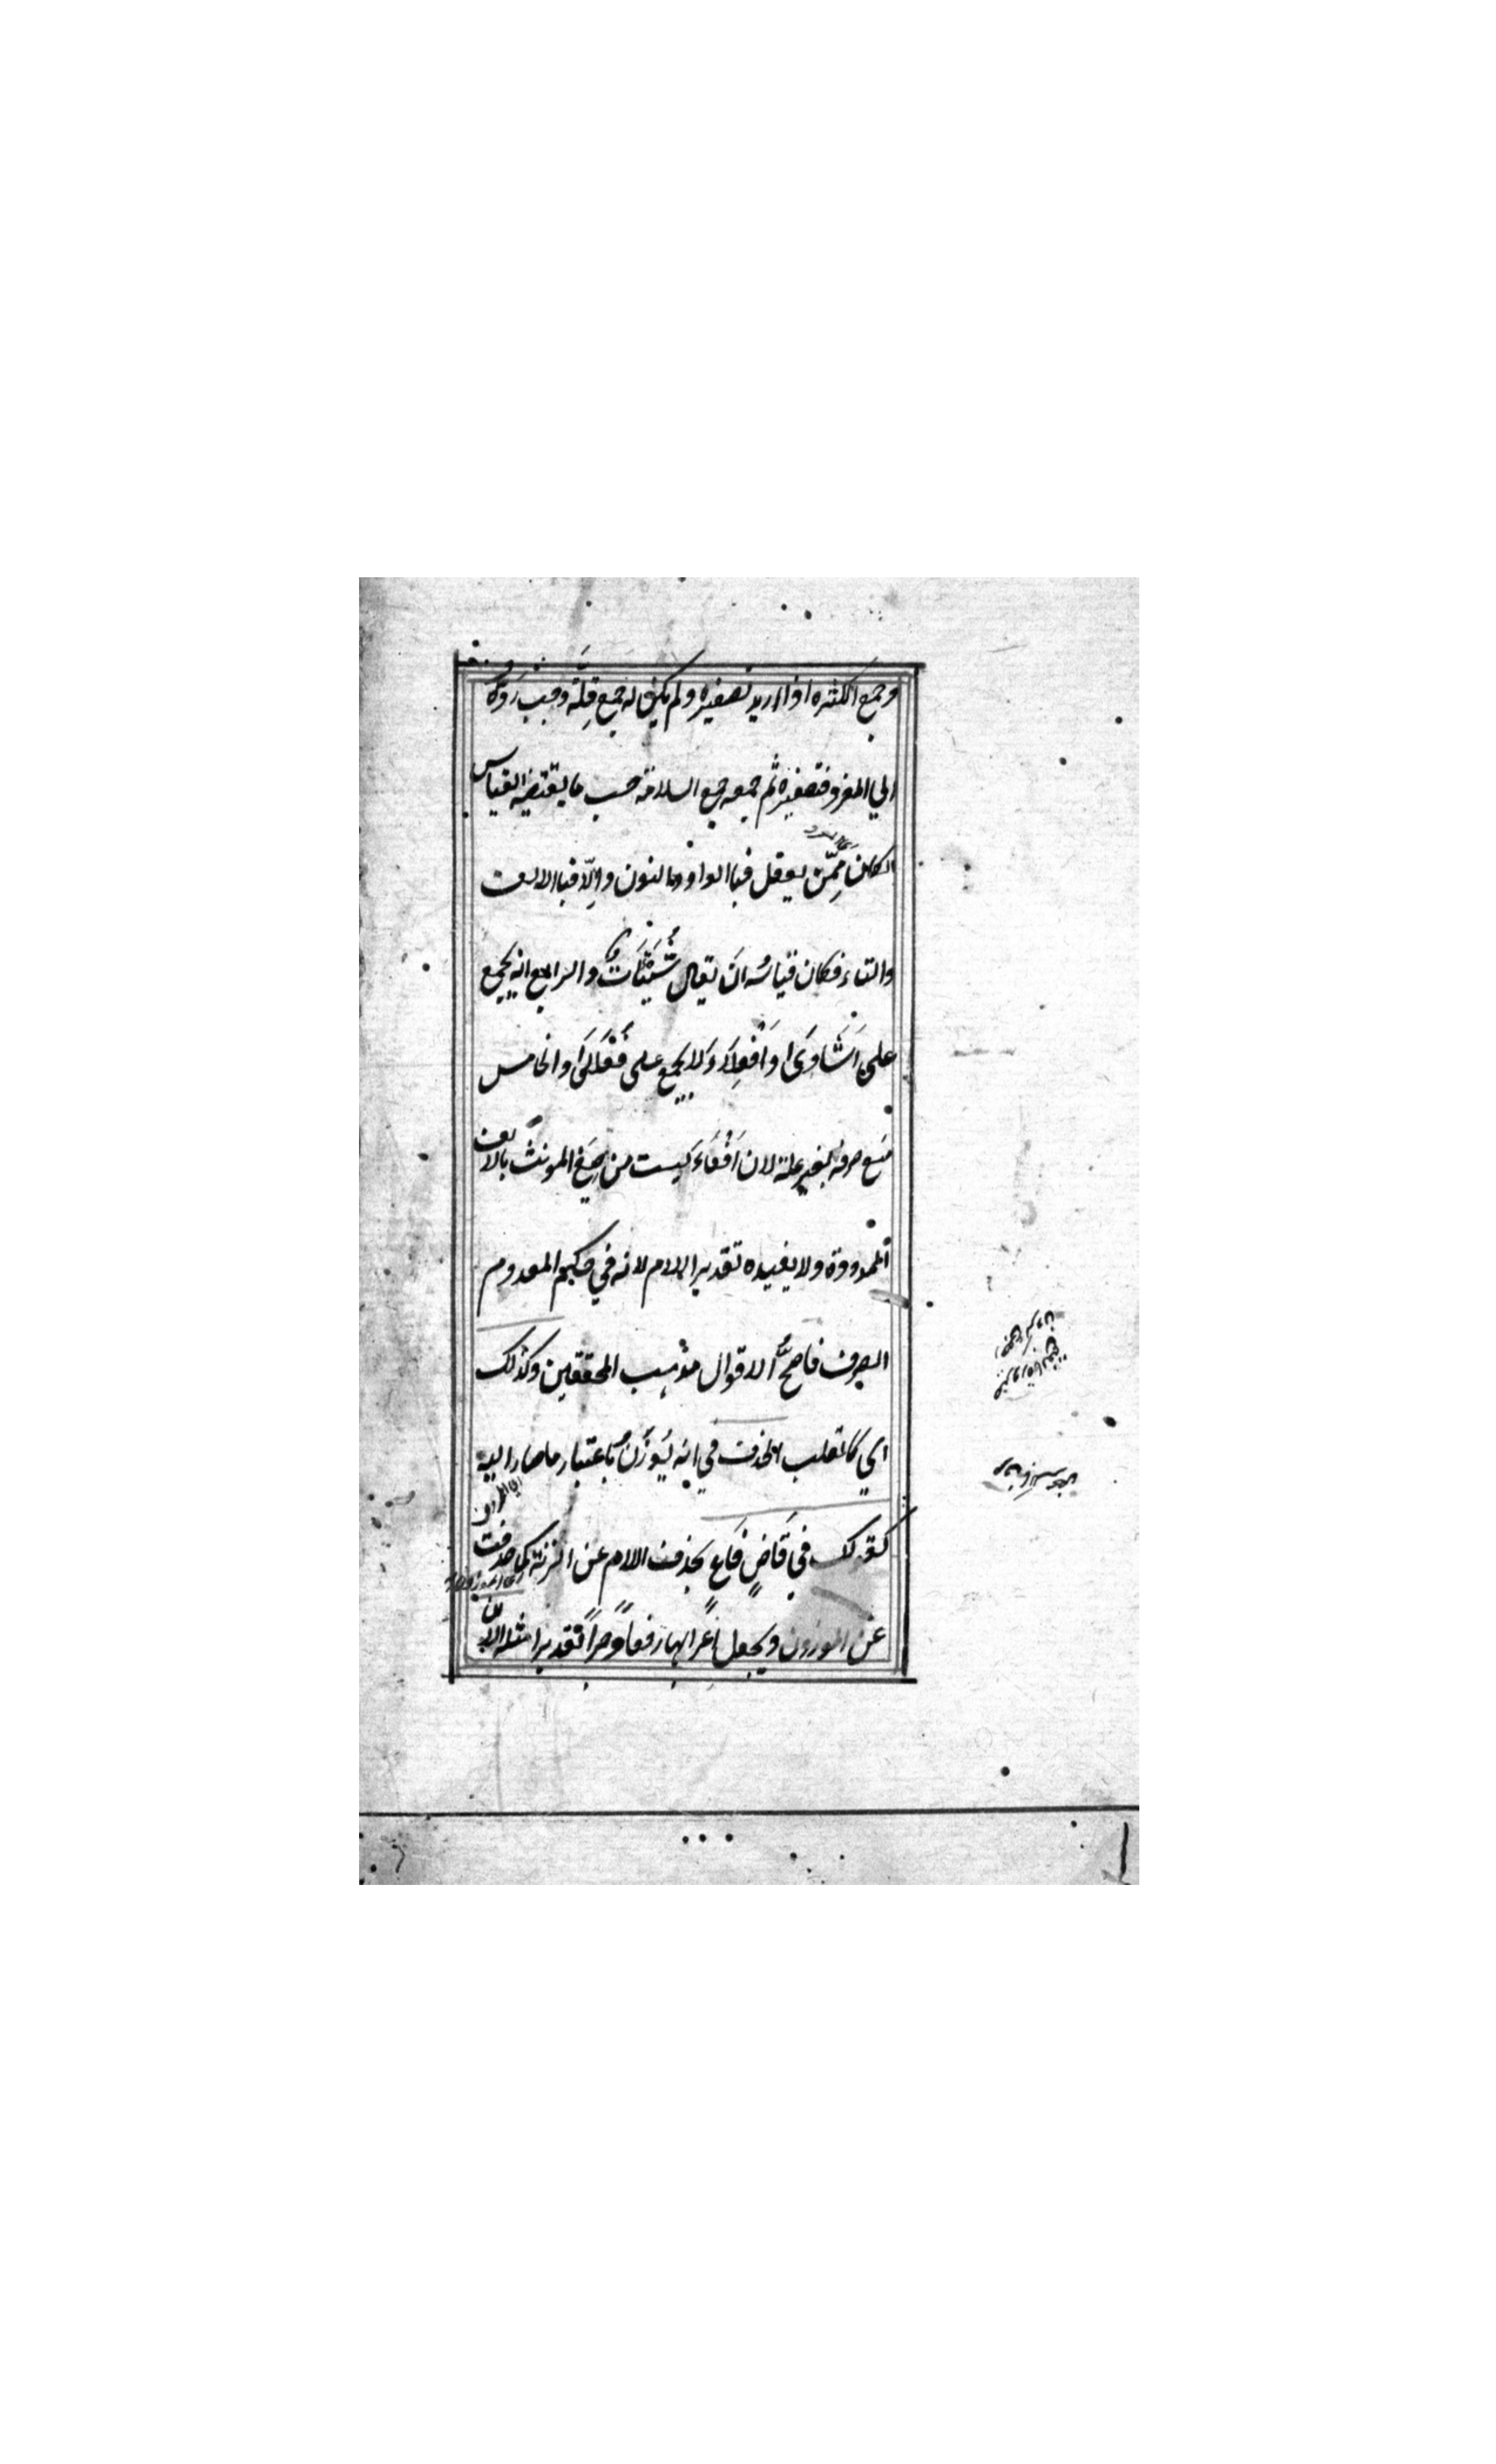 وجمع الكثره اذا اريد تصغيره ولم يكن له جمع قلّة وجب ردّه
الي المفرد فتصغيره ثم جمعه جمع السلامة حسب ما يقتضيه القياس
الكان ممّن يعقل فبا الواو والنون والّا فبا الالف
والتاء فكان قياسه ان يقال شُيَيْئَات والرابع انه يجمع
على اَشَاوَىٰ وافعلاء ولا يجمع على فَعَالَىٰ والخامس
منع صرفه بغير علة لان اَفْعَاءَ ليست من صيغ المونث بالالف
الممدودة ولا يفيده تقدير اللام لانه في حكم المعدوم
الصرف فاصحُّ الاقوال مذهب المحققين وكذلك
اي كالقلب الحذف في انه يُوزَنُ باعتبار ما صار اليه
كقولك في قَاضٍ فَاعٍ بحذف اللام عن الزنة كما حذفت
عن الموزون ويجعل اعرابها رفعاً وجراً تقديرا مثله الا ان